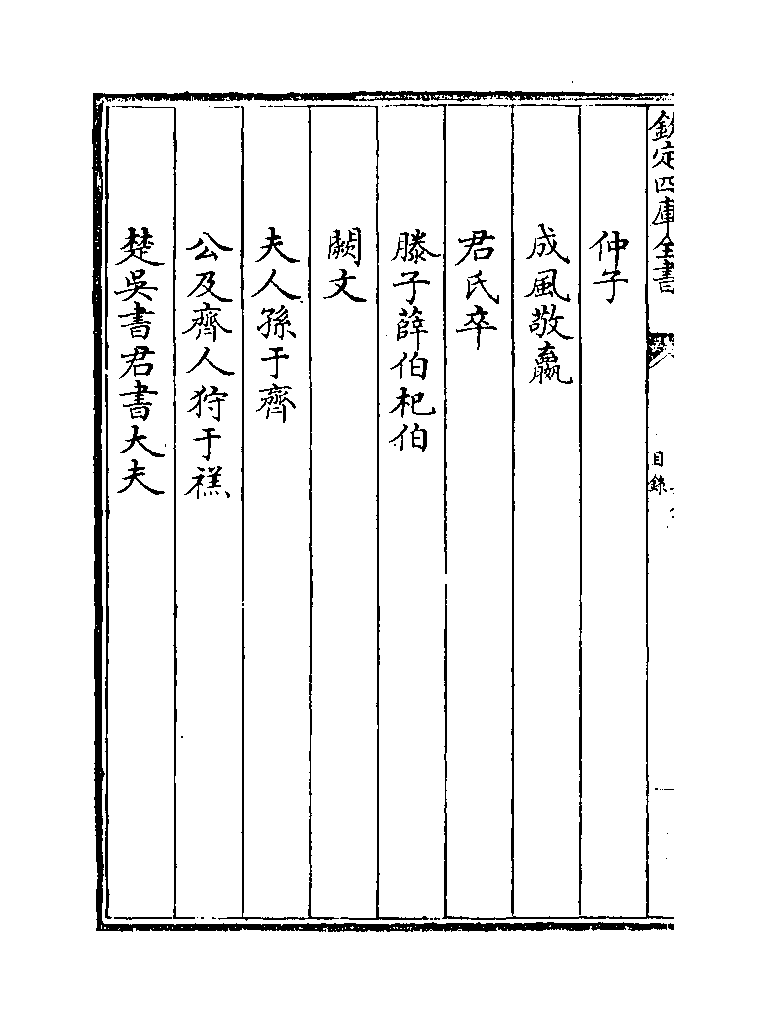 欽定四庫全書
目錄
仲子
成風敬嬴
君氏卒
滕子薛伯杞伯
闕文
夫人孫于齊
公及齊人狩于禚
楚吳書君書大夫